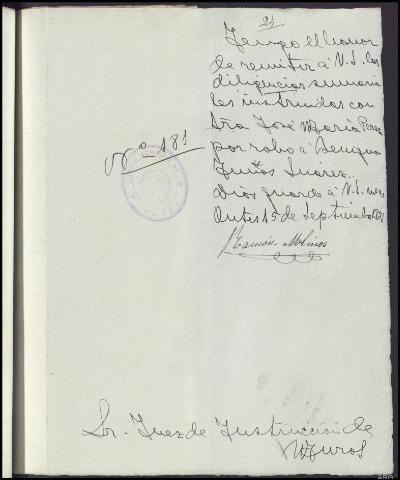 21
Tengo el honor
de remitir á V.I. las
diligencias sumaria
les instruidas con
tra José María Perez
por robo á Benigna
Suárez.
Dios guarde á V.I. m. a.
Outes 15 de Septiembre
Ramón Molinos
Nº 181
Sr. Juez de Instrucción de
Muros